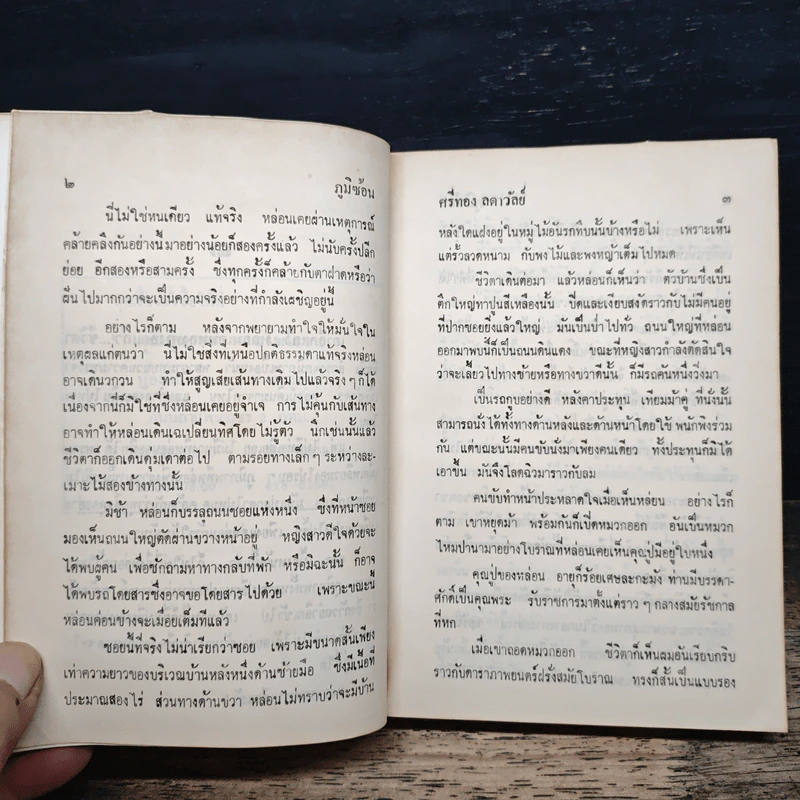 ๒ ภูมิซ้อน
นี่ไม่ใช่หนเดียว แท้จริง หล่อนเคยผ่านเหตุการณ์
คล้ายคลึงกันอย่างนี้มาอย่างน้อยก็สองครั้งแล้ว ไม่นับครั้งปลีก
ย่อย อีกสองหรือสามครั้ง ซึ่งทุกครั้งก็คล้ายกับตาฝาดหรือว่า
ฝันไปมากกว่าจะเป็นความจริงอย่างที่กำลังเผชิญอยู่นี้
อย่างไรก็ตาม หลังจากพยายามทำใจให้มั่นใจใน
เหตุผลแก่ตนว่า นี่ไม่ใช่สิ่งที่เหนือปกติธรรมดาแท้จริงหล่อน
อาจเดินวกวน ทำให้สูญเสียเส้นทางเดิมไปแล้วจริงๆก็ได้
เนื่องจากนี่ก็มิใช่ที่ซึ่งหล่อนเคยอยู่จำเจ การไม่คุ้นกับเส้นทาง
อาจทำให้หล่อนเดินเฉเปลี่ยนทิศโดยไม่รู้ตัว นึกเช่นนั้นแล้ว
ชีวิตาก็ออกเดินดุ่มเดาต่อไป ตามรอยทางเล็กๆระหว่างละ-
เมาะไม้สองข้างทางนั้น
มิช้า หล่อนก็บรรลุถนนซอยแห่งหนึ่ง ซึ่งที่หน้าซอย
มองเห็นถนนใหญ่ตัดผ่านขวางหน้าอยู่ หญิงสาวดีใจด้วยจะ
ได้พบผู้คน เพื่อซักถามหาทางกลับที่พัก หรือมิฉะนั้น ก็อาจ
ได้พบรถโดยสารซึ่งอาจขอโดยสารไปด้วย เพราะขณะนี้
หล่อนค่อนข้างจะเมื่อยเต็มทีแล้ว
ซอยนี้ที่จริงไม่น่าเรียกว่าซอย เพราะมีขนาดสั้นเพียง
เท่าความยาวของบริเวณบ้านหลังหนึ่งด้านซ้ายมือ ซึ่งมีเนื้อที่
ประมาณสองไร่ ส่วนทางด้านขวา หล่อนไม่ทราบว่าจะมีบ้าน
ศรีทอง ลดาวัลย์ ๓
หลังใดแฝงอยู่ในหมู่ไม้อันรกทึบนั้นบ้างหรือไม่ เพราะเห็น
แต่รั้วลวดหนาม กับพงไม้และพงหญ้าเต็มไปหมด
ชีวิตาเดินต่อมา แล้วหล่อนก็เห็นว่า ตัวบ้านซึ่งเป็น
ตึกใหญ่ทาปูนสีเหลืองนั้น ปิดและเงียบสงัดราวกับไม่มีคนอยู่
ที่ปากซอยยิ่งแล้วใหญ่ มันเป็นป่าไปทั่ว ถนนใหญ่ที่หล่อน
ออกมาพบนี้ก็เป็นถนนดินแดง ขณะที่หญิงสาวกำลังตัดสินใจ
ว่าจะเลี้ยวไปทางซ้ายหรือทางขวาดีนั้น ก็มีรถคันหนึ่งวิ่งมา
เป็นรถกูบอย่างดี หลังคาประทุน เทียมม้าคู่ ที่นั่งนั้น
สามารถนั่งได้ทั้งทางด้านหลังและด้านหน้าโดยใช้พนักพิงร่วม
กัน แต่ขณะนั้นมีคนขับนั่งมาเพียงคนเดียว ทั้งประทุนก็มิได้
เอาขึ้น มันจึงโลดฉิวมาราวกับลม
คนขับทำหน้าประหลาดใจเมื่อเห็นหล่อน อย่างไรก็
ตาม เขาหยุดม้า พร้อมกันก็เปิดหมวกออก อันเป็นหมวก
ไหมปานามาอย่างโบราณที่หล่อนเคยเห็นคุณปู่มีอยู่ใบหนึ่ง
คุณปู่ของหล่อน อายุก็ร้อยเศษละกะมัง ท่านมีบรรดา-
ศักดิ์เป็นคุณพระ รับราชการมาตั้งแต่ราวๆกลางสมัยรัชกาล
ที่หก
เมื่อเขาถอดหมวกออก ชีวิตาก็เห็นผมอันเรียบกริบ
ราวกับดาราภาพยนตร์ฝรั่งสมัยโบราณ ทรงก็สั้นเป็นแบบรอง